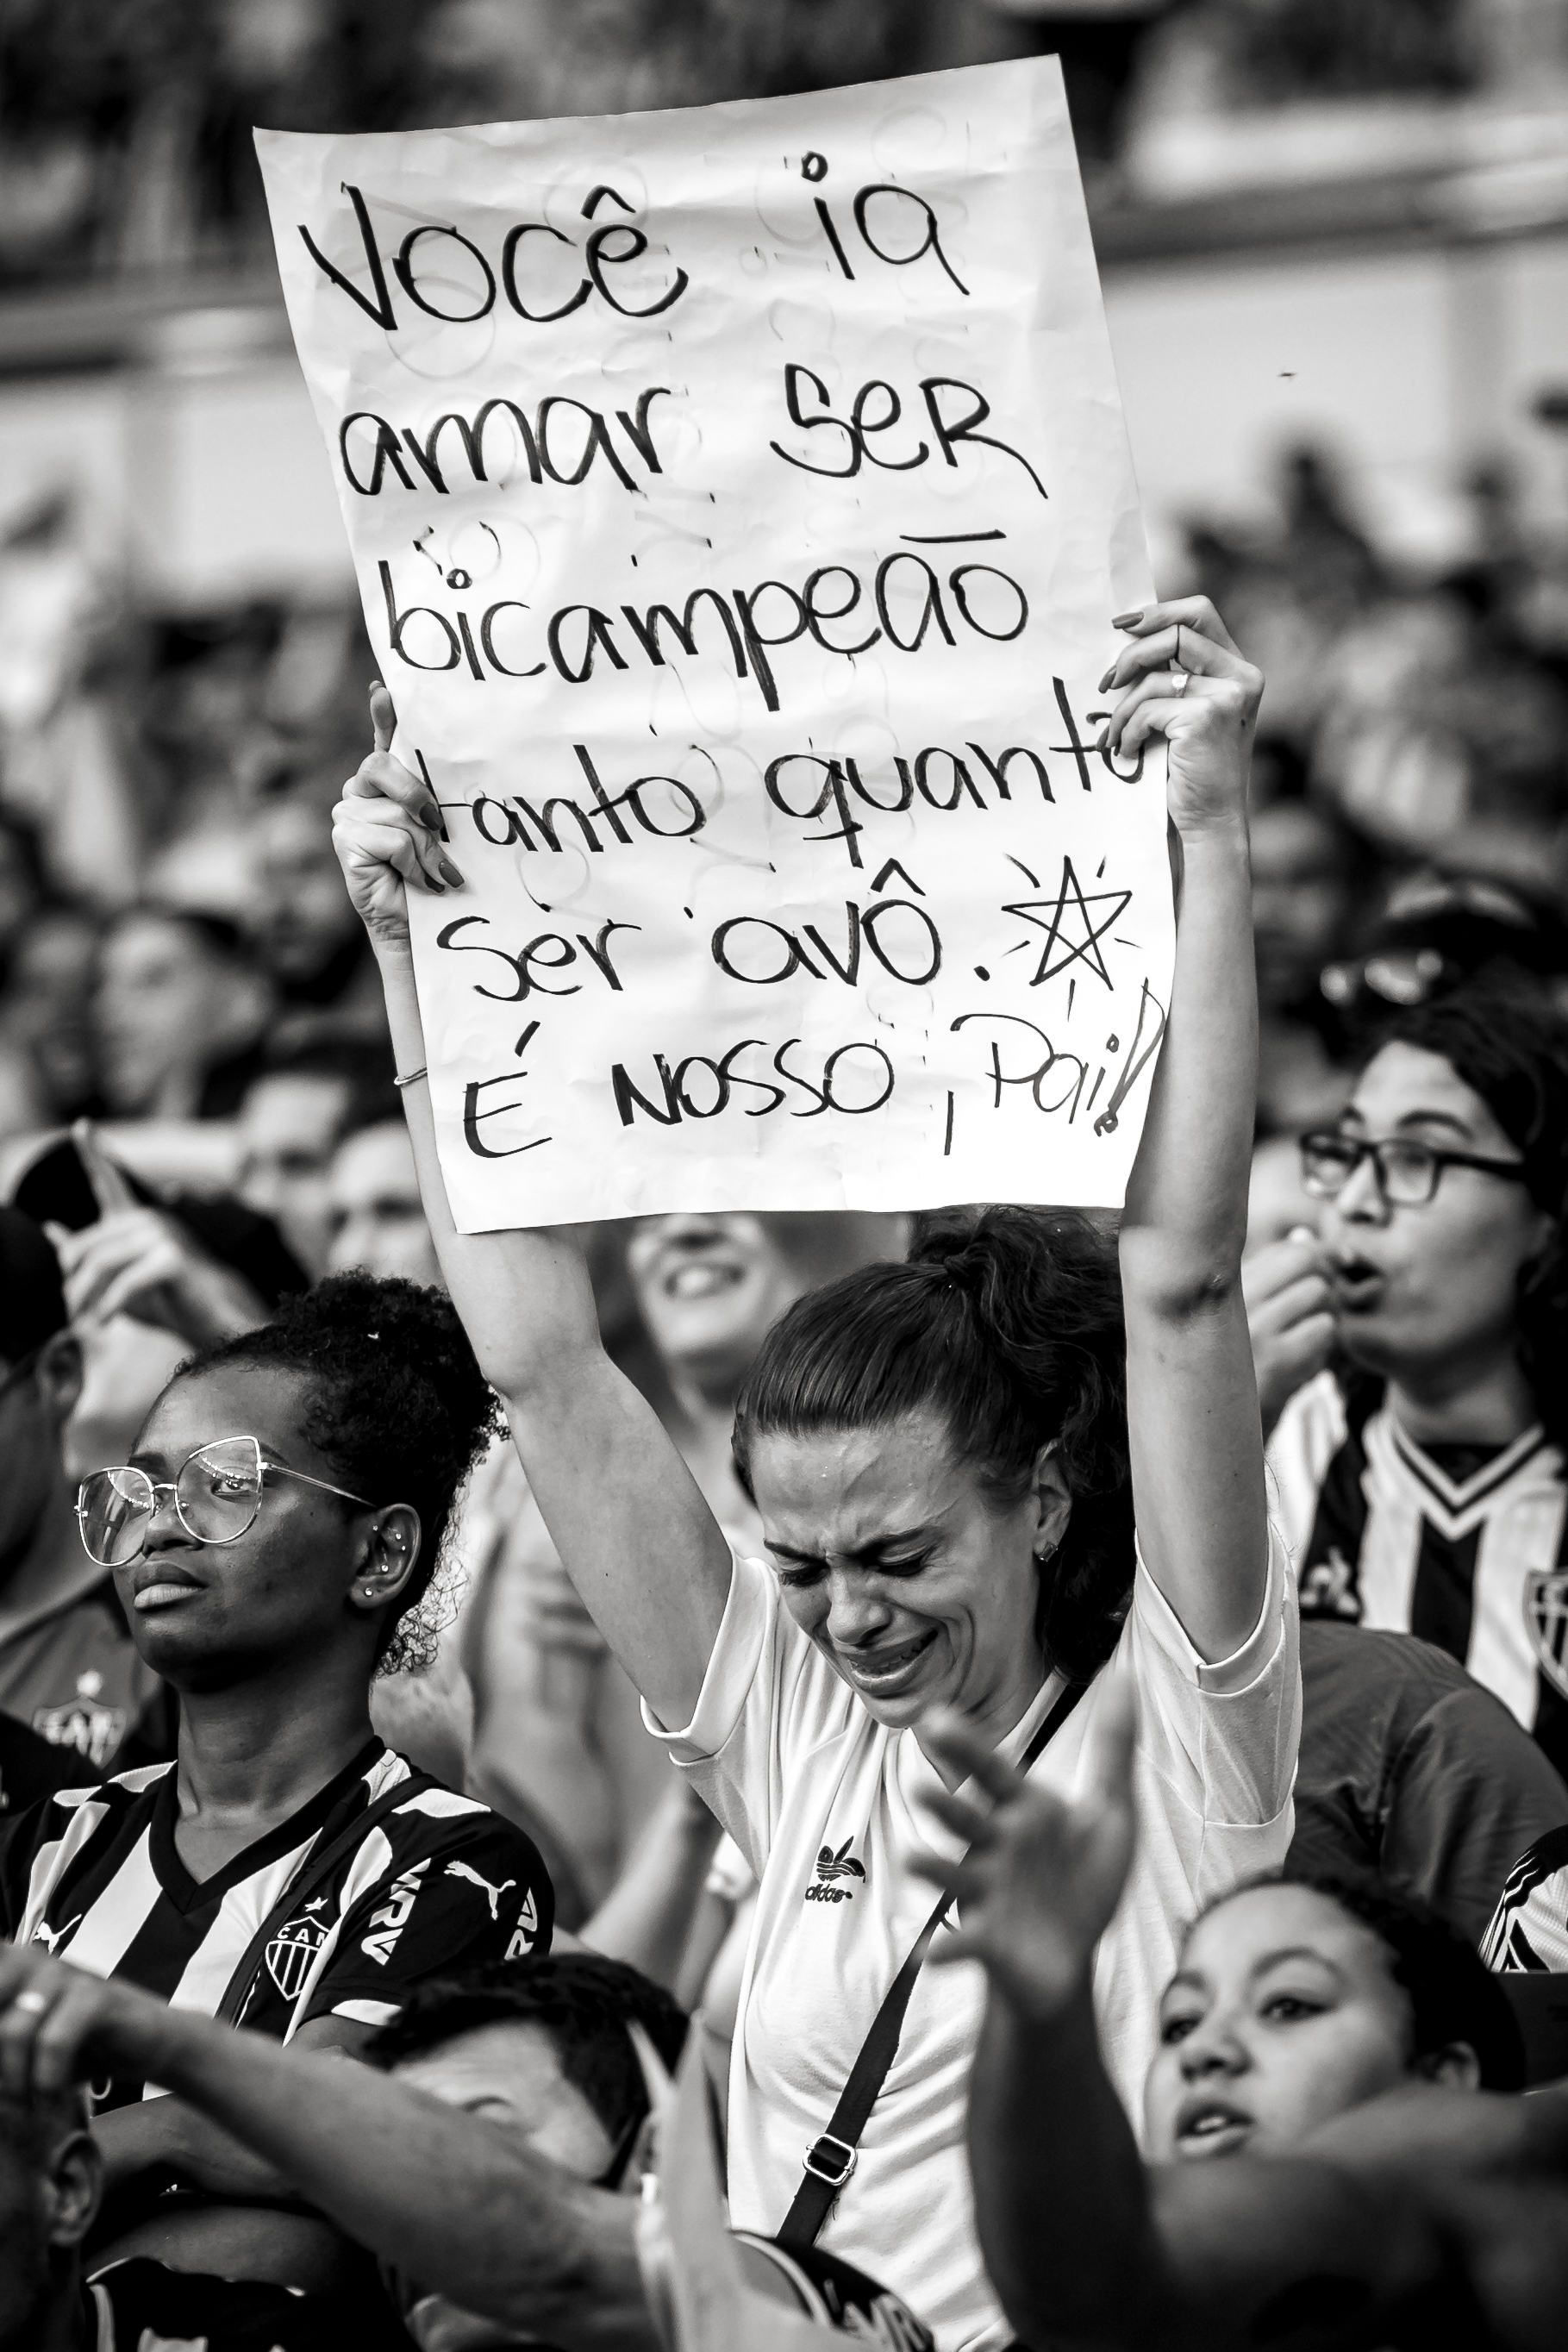 Você ia
amar ser
bicampeão
tanto quanto
ser avô.
É nosso, Pai!
adidas
CAM
MRV